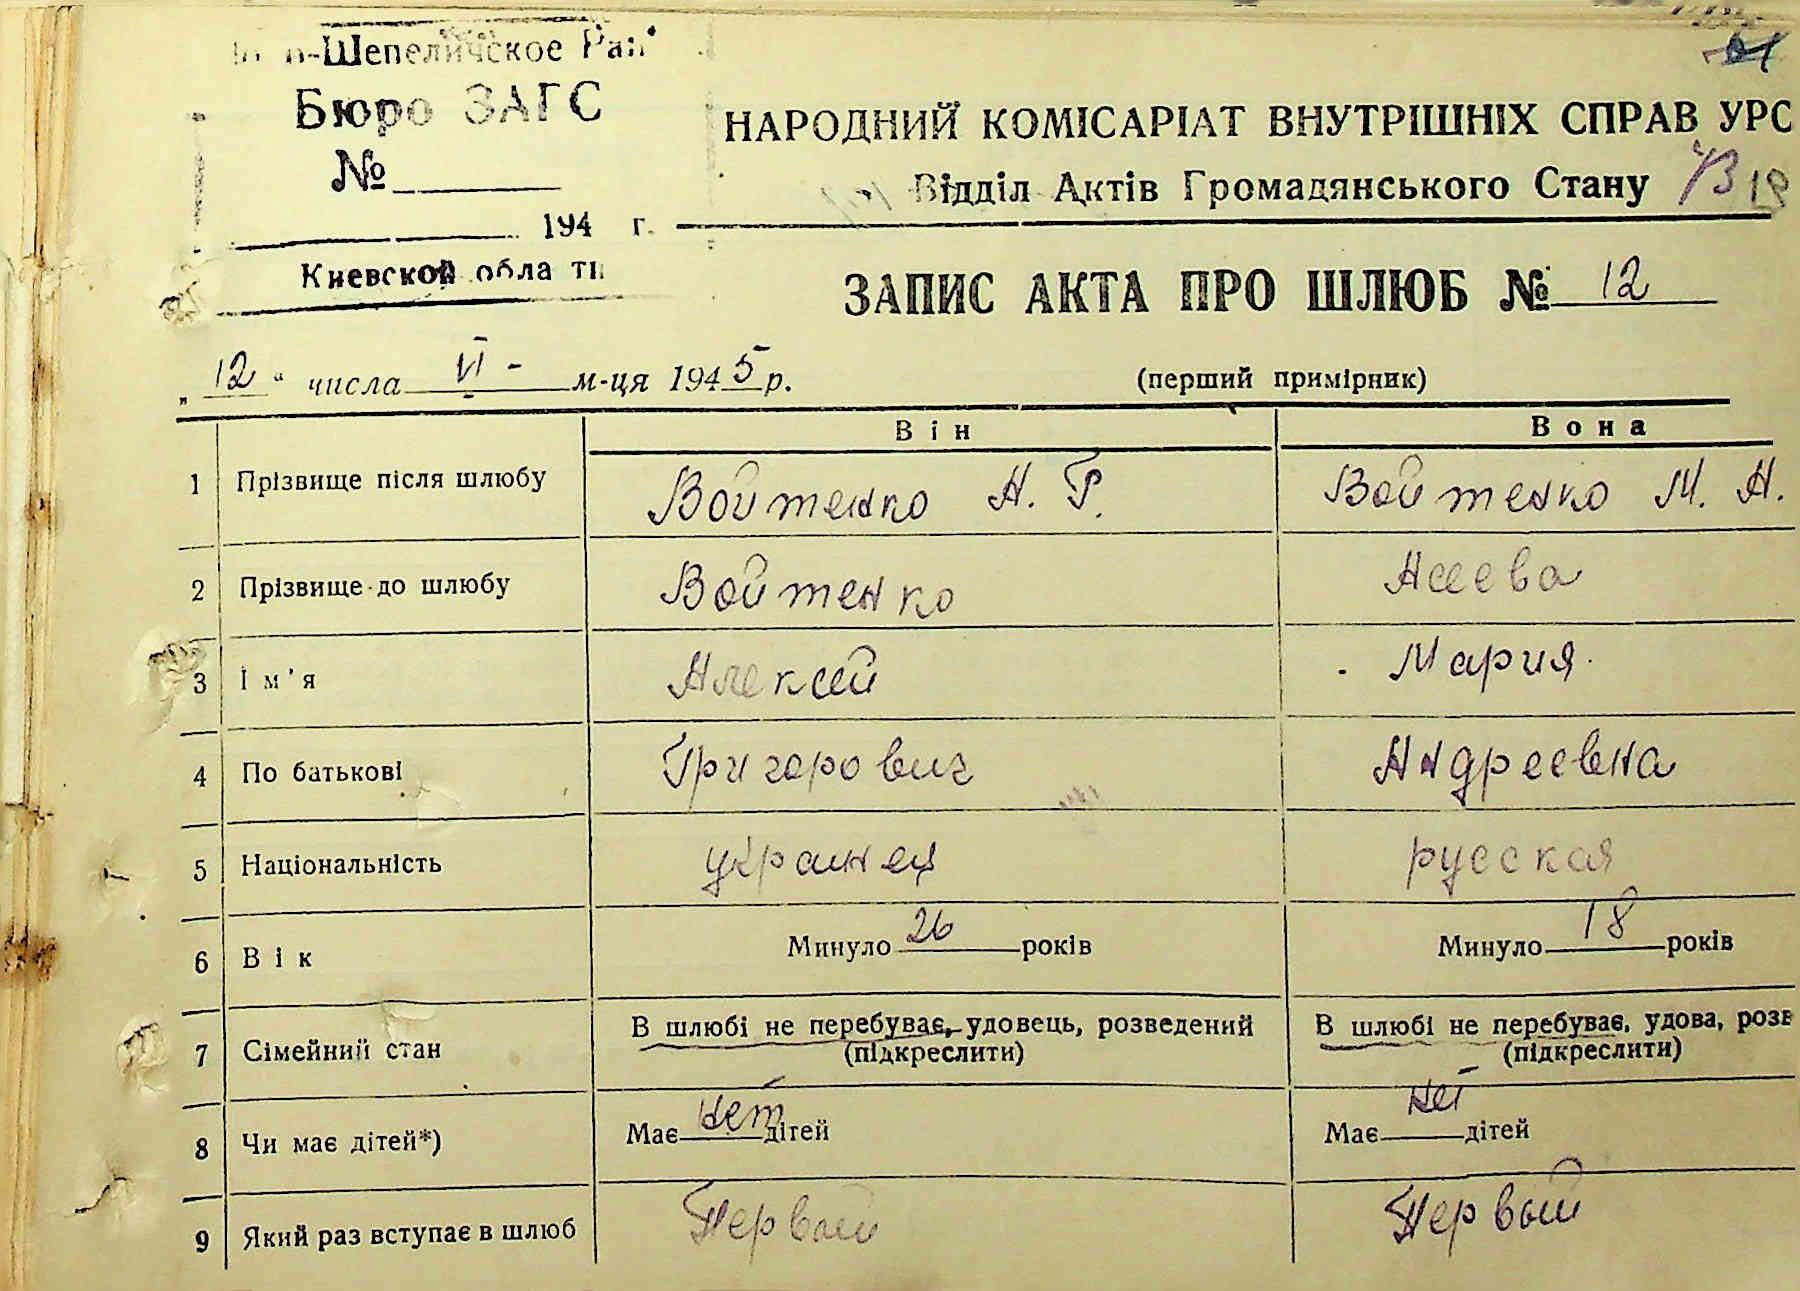 -Шепеличское Рай
Бюро ЗАГС
№
194 г.
Киевской обла ти
НАРОДНИЙ КОМІСАРІАТ ВНУТРІШНІХ СПРАВ УРС
Відділ Актів Громадянського Стану
ЗАПИС АКТА ПРО ШЛЮБ № 12
„12“ числа VI - м-ця 1945 р.
(перший примірник)
Він Вона
1 Прізвище після шлюбу Войтенко А. Г. Войтенко М. А.
2 Прізвище до шлюбу Войтенко Асеева
3 Ім'я Алексей Мария
4 По батькові Григорович Андреевна
5 Національність украинец русская
6 Вік Минуло 26 років Минуло 18 років
7 Сімейний стан В шлюбі не перебуває, удовець, розведений В шлюбі не перебуває, удова, розв
(підкреслити) (підкреслити)
8 Чи має дітей*) Має нет дітей Має нет дітей
9 Який раз вступає в шлюб Первый Первый